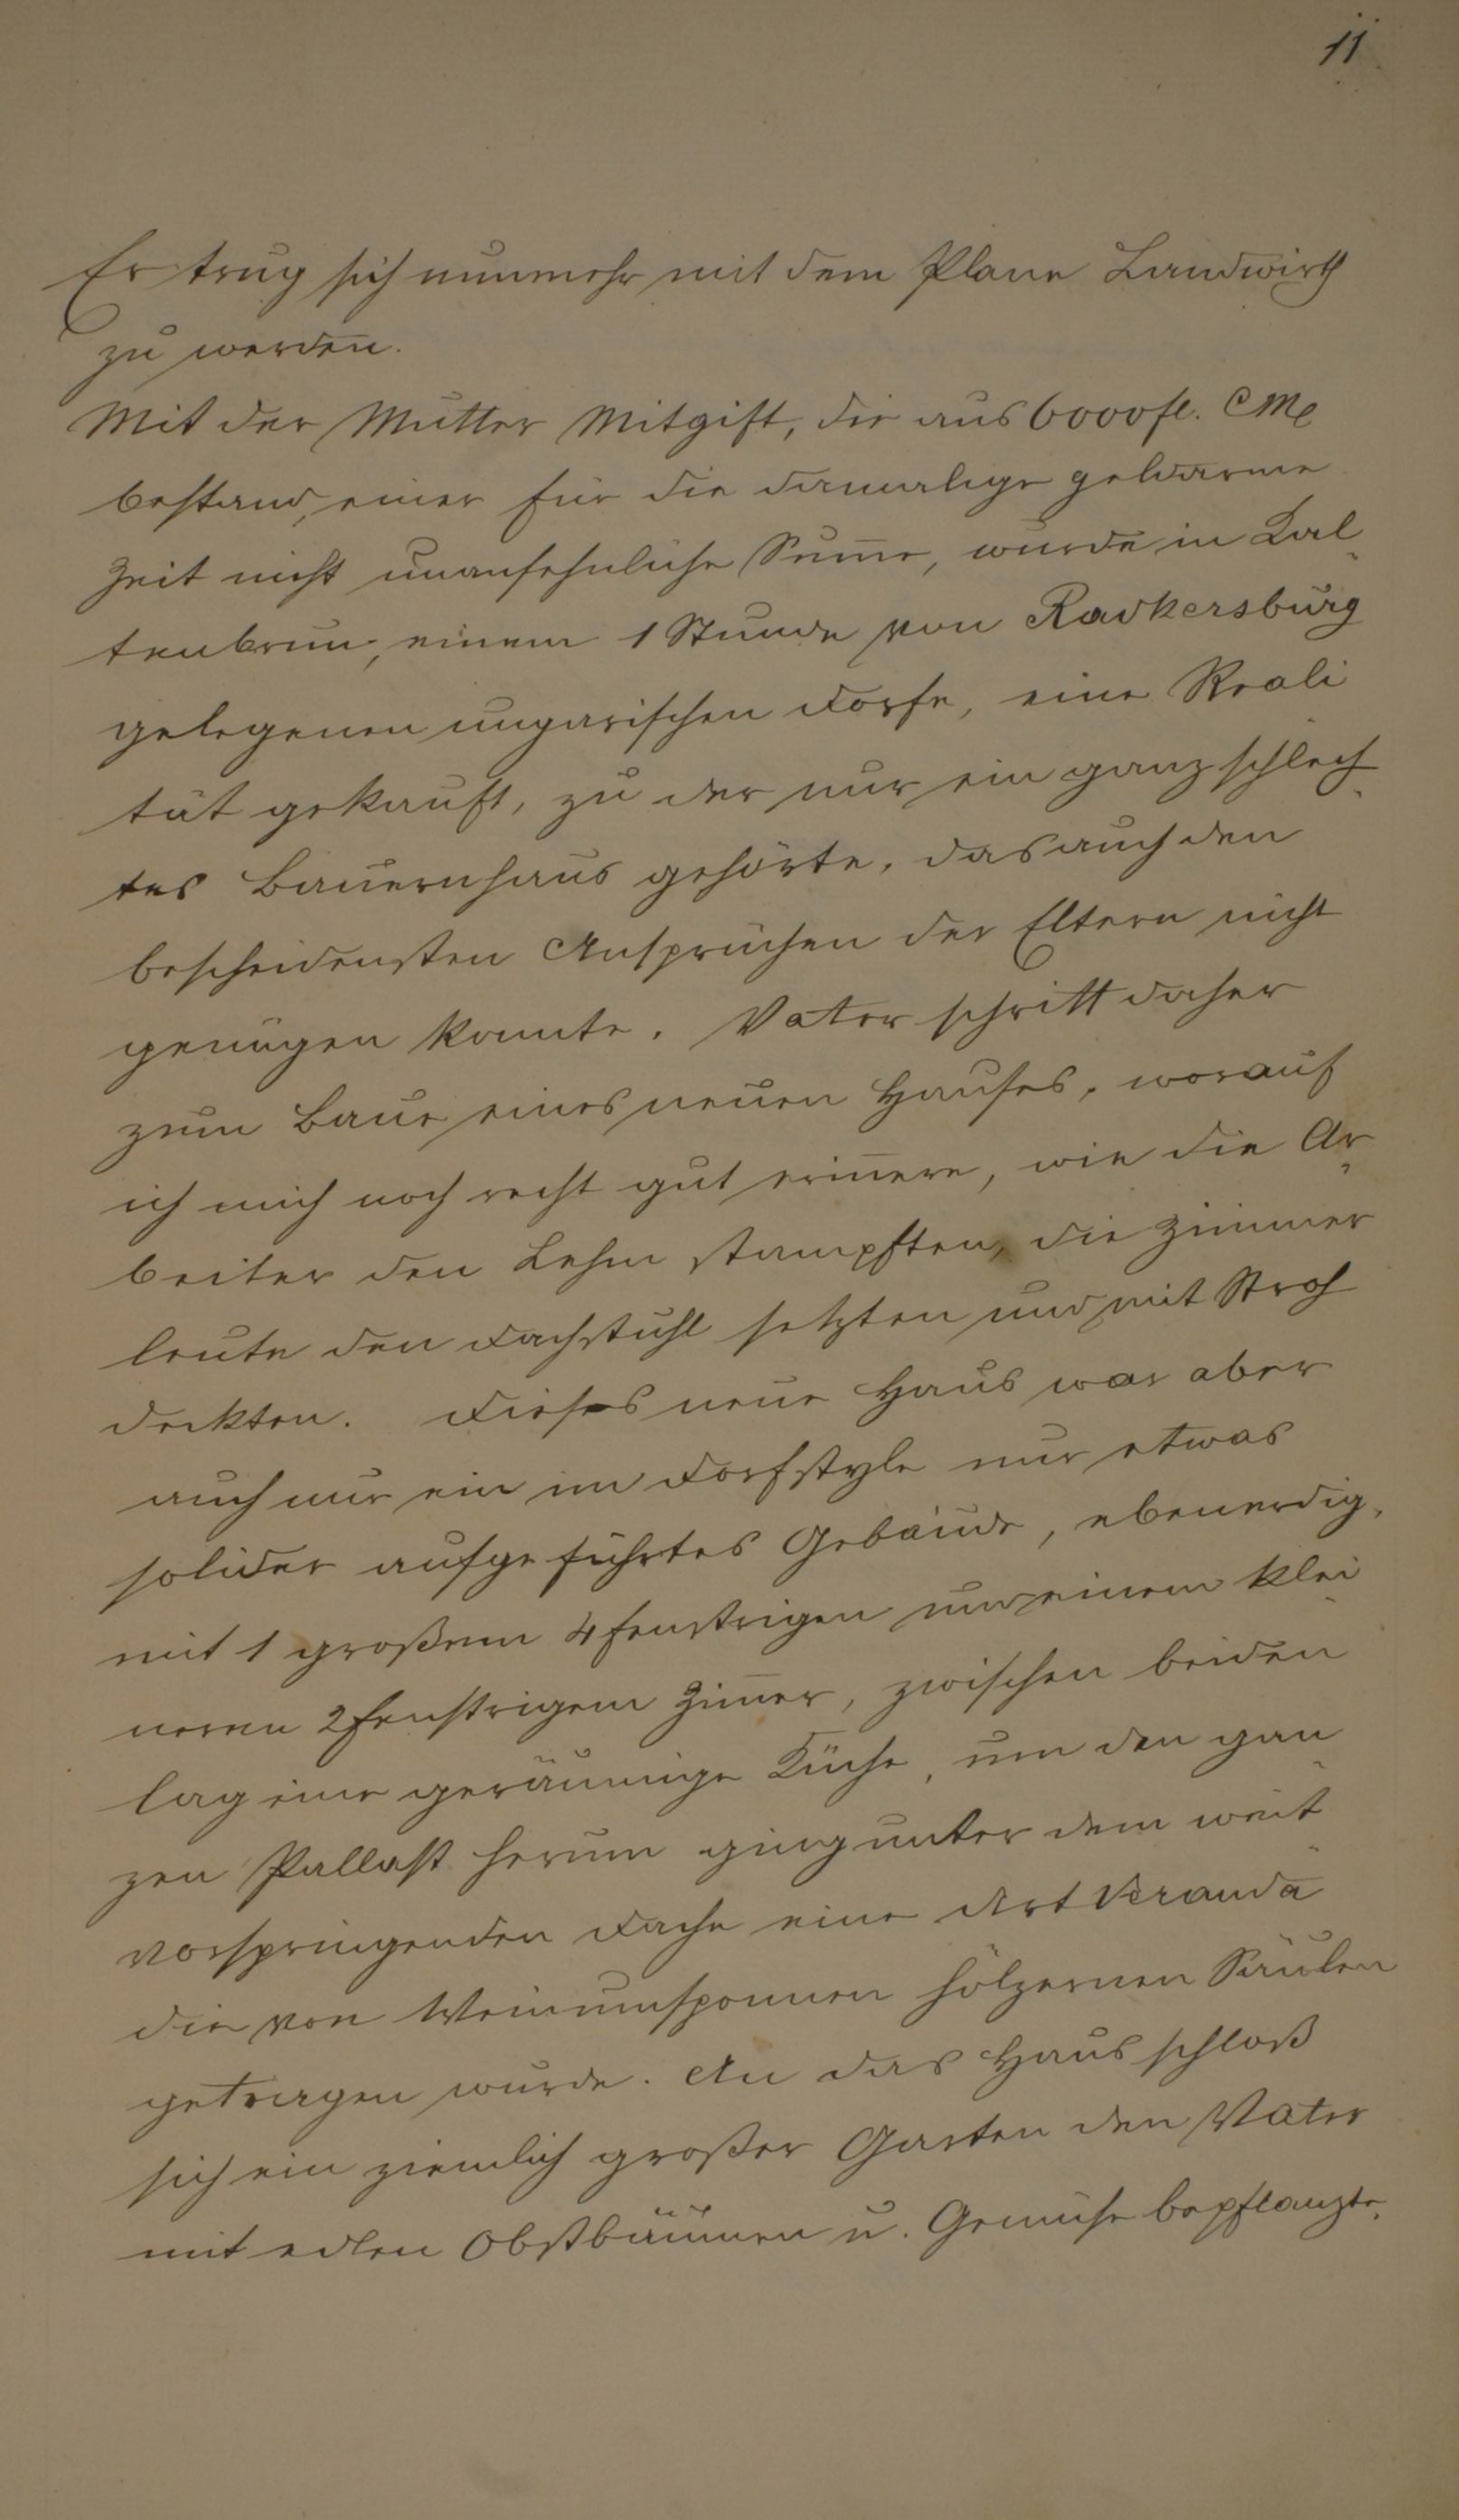 11
Er trug sich nunmehr mit dem Plane Landwirth
zu werden.
Mit der Mutter Mitgift, die aus 6000 fl. CMe
bestand, einer für die damalige geldarme
Zeit nicht unansehnliche Sum̅e, wurde in Kal-
tenbrun, einem 1 Stunde von Radkersburg
gelegenen ungarischen Dorfe, eine Reali-
tät gekauft, zu der nur ein ganz schlech-
tes Bauernhaus gehörte, das auch den
bescheidensten Ansprüchen der Eltern nicht
genügen konnte. Vater schritt daher
zum Baue eines neuen Hauses, worauf
ich mich noch recht gut erin̅ere, wie die Ar-
beiter den Lehm stampften, die Zimmer
leute den Dachstuhl setzten und mit Stroh
deckten. Dieses neue Haus war aber
auch nur ein im Dorfstyle nur etwas
solider aufgeführtes Gebäude, ebenerdig,
mit 1 großem 4fenstrigen und einem klei-
neren 2fenstrigem Zim̅er, zwischen beiden
lag eine geräumige Küche, um den gan-
zen Pallast herum ging unter dem weit-
vorspringenden Dache eine Art Veranda
die von Weinumsponnen hölzernen Säulen
getragen wurde. An das Haus schloß
sich ein ziemlich großer Garten den Vater
mit edlen Obstbäumen u. Gemüse bepflanzte.